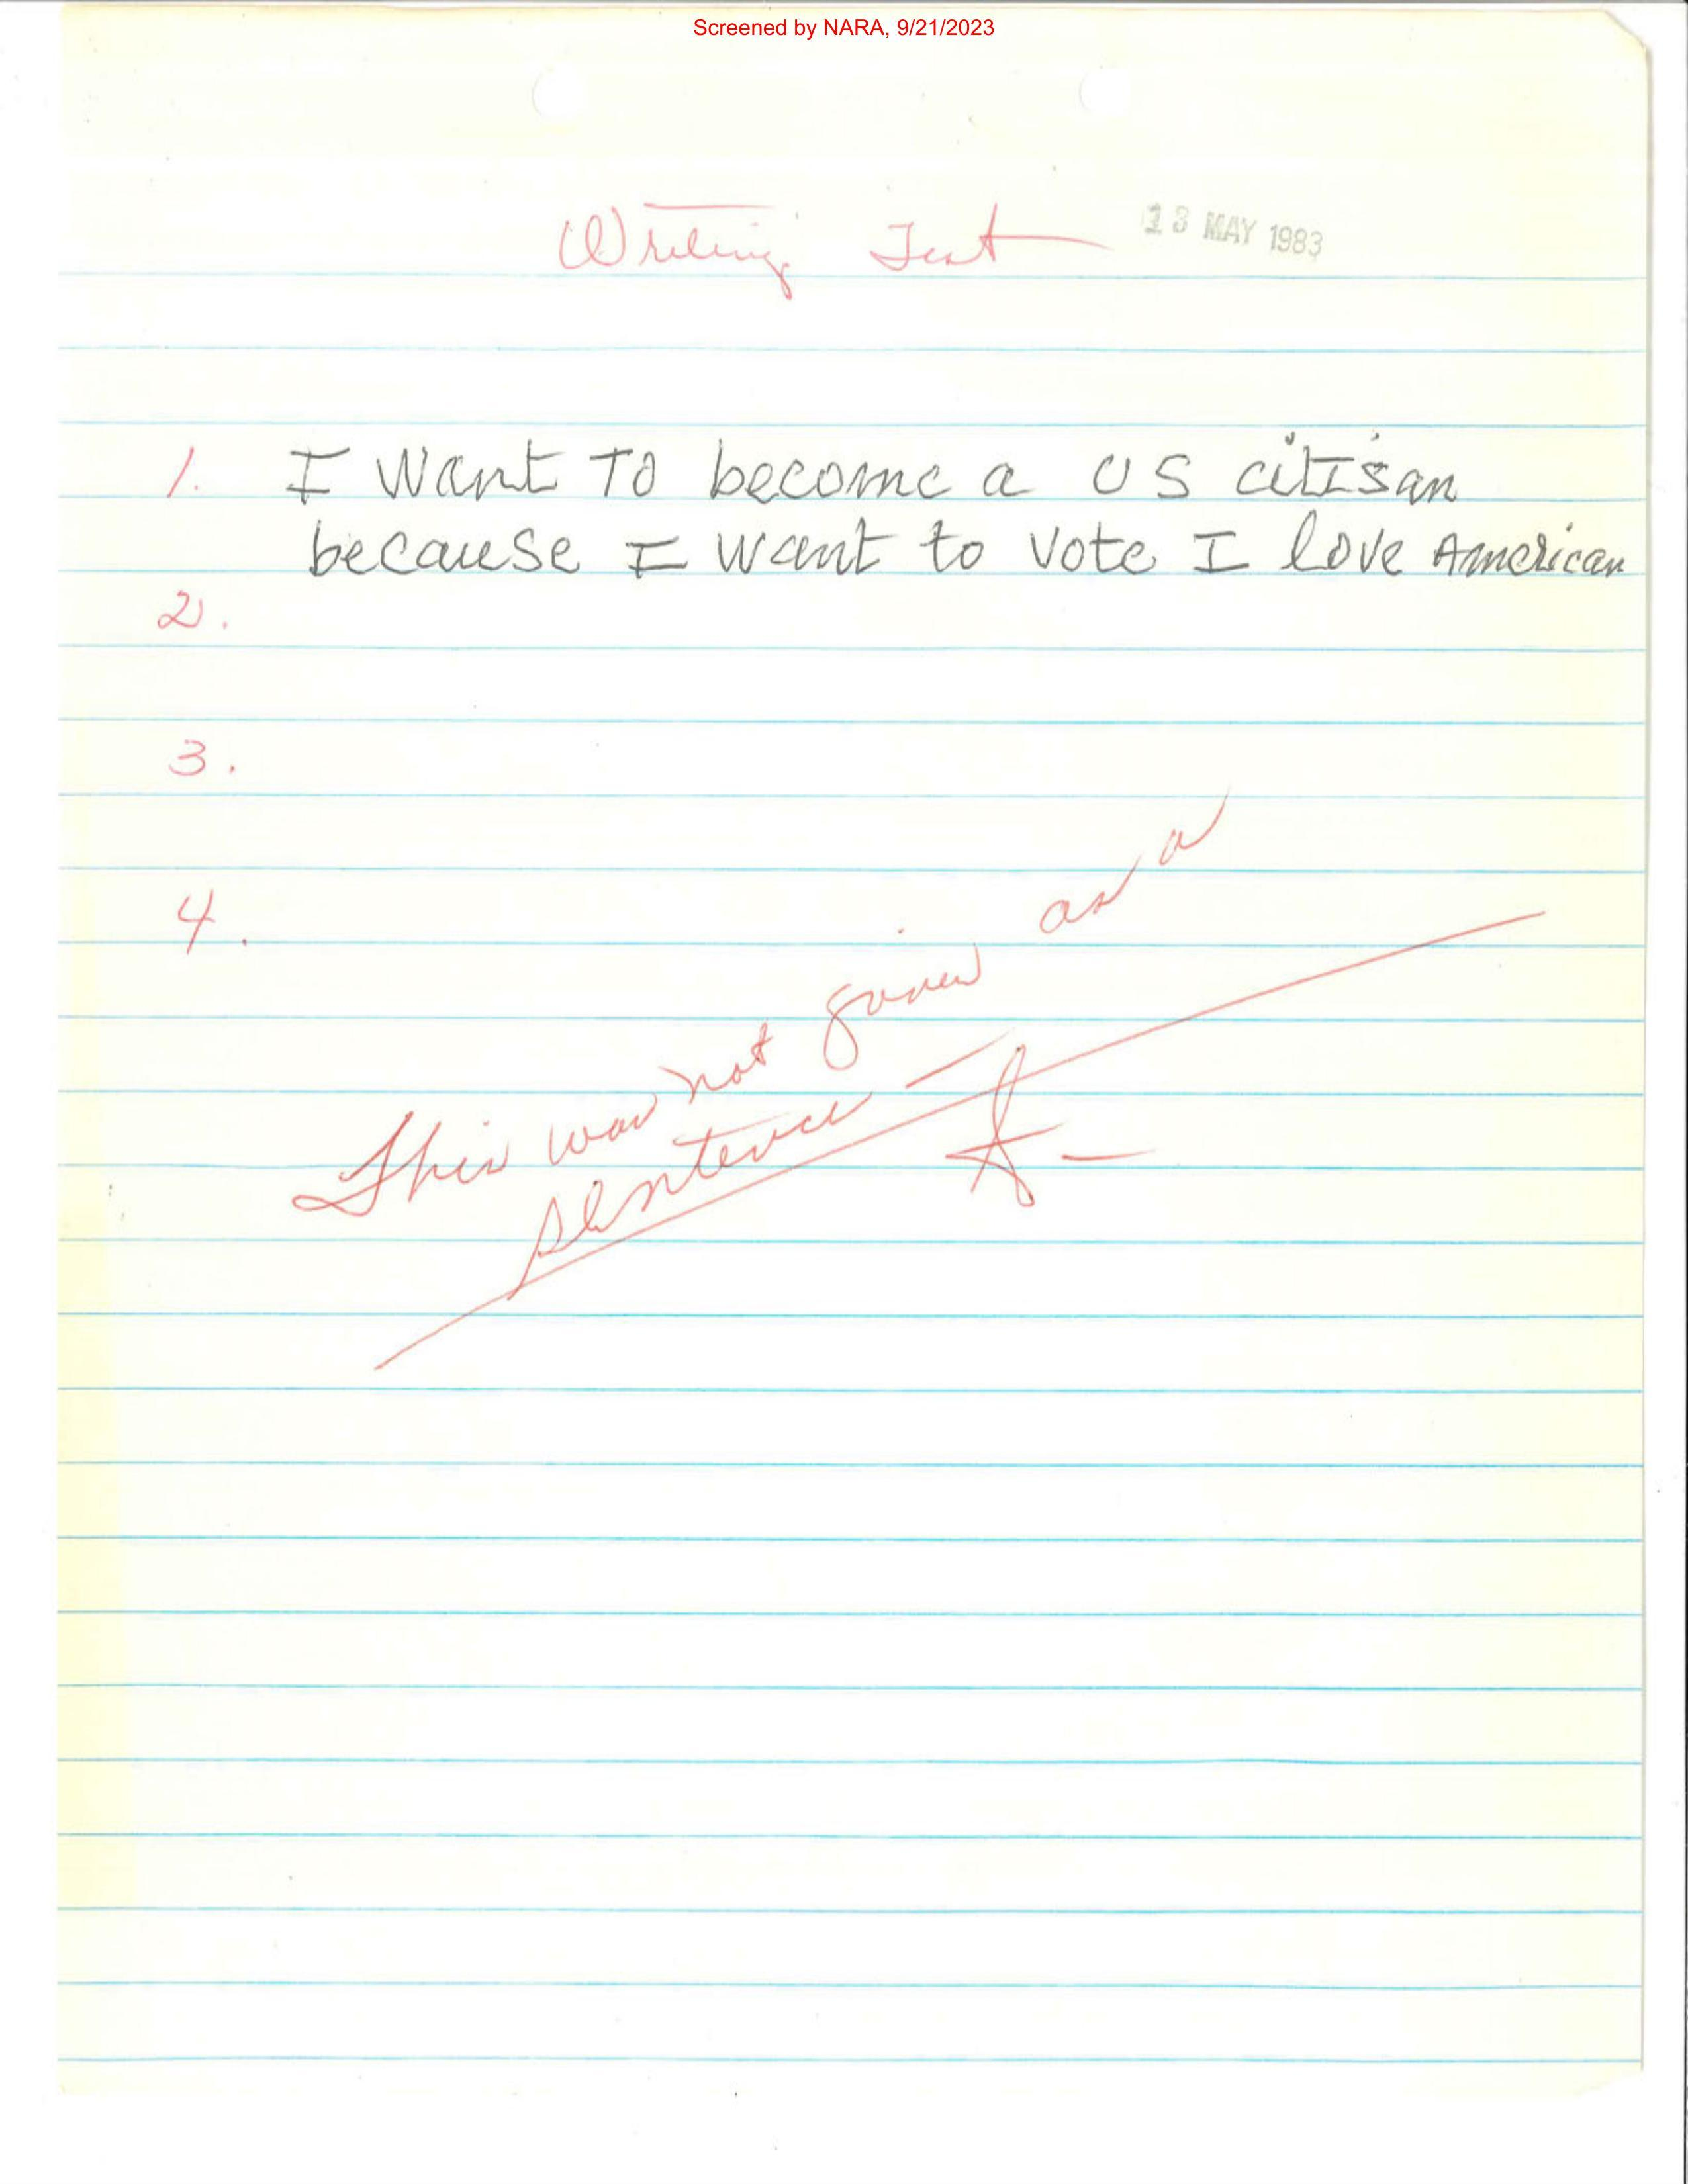 Screened by NARA, 9/21/2023
Writing Test
13 MAY 1983
1. I Want To become a US citisan
because I want to vote I love American
2.
3.
4.
This was not given as a
sentence —